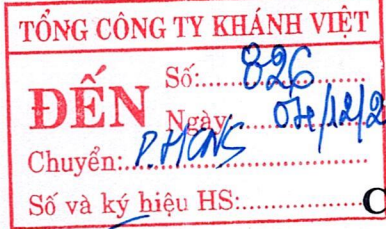 TỔNG CÔNG TY KHÁNH VIỆT
ĐẾN
Số:......826......
Ngày.....04/12/2
Chuyển:..............
Số và ký hiệu HS:..............
C